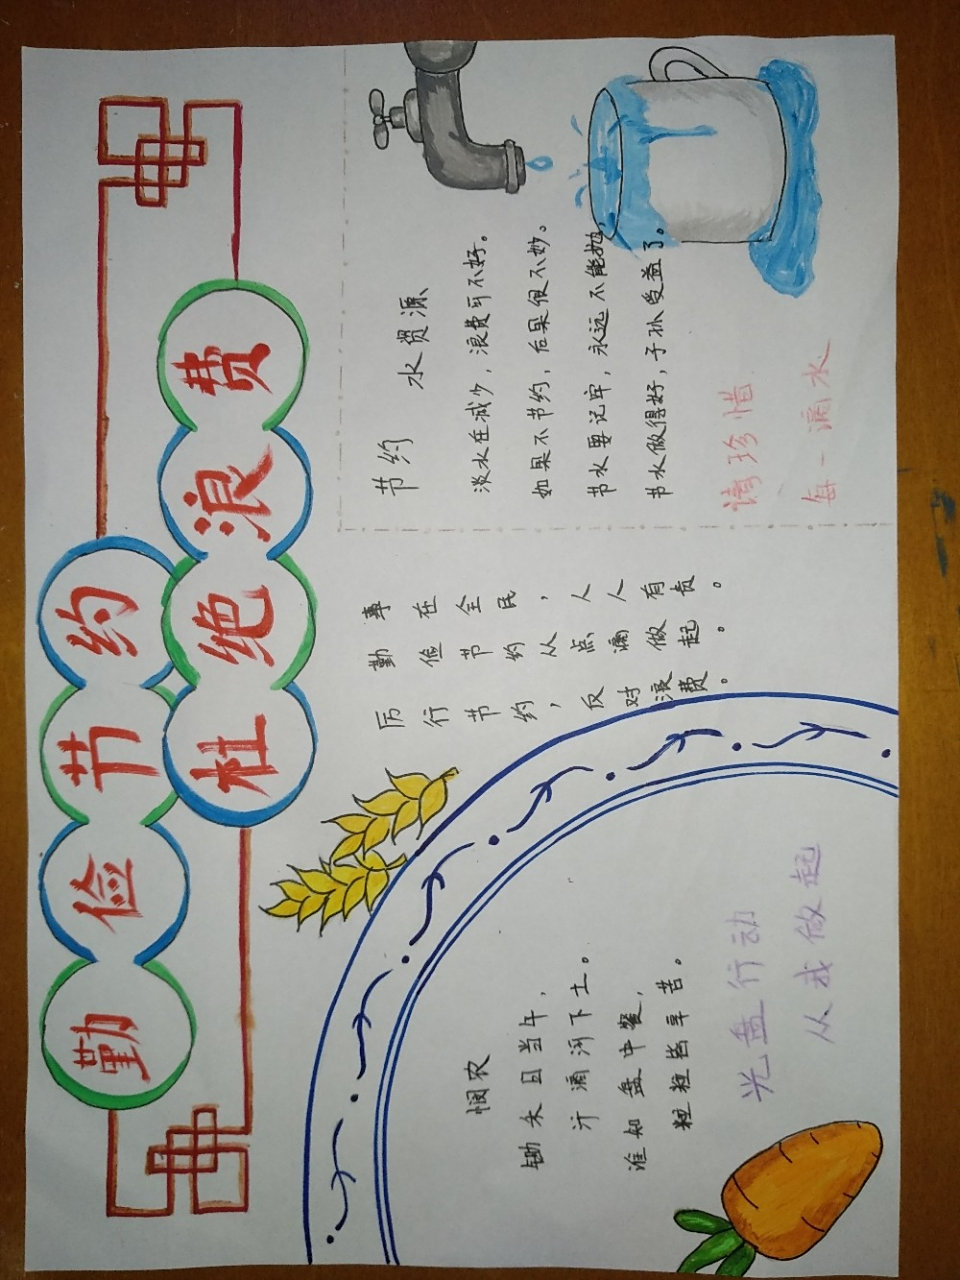 勤俭节约
杜绝浪费
悯农
锄禾日当午，
汗滴河下土。
谁知盘中餐，
粒粒皆辛苦。
光盘行动
从我做起
厉行节约，反对浪费。
勤俭节约从点滴做起。
事在全民，人人有责。
节约 水资源
淡水在减少，浪费可不好。
如果不节约，后果很不妙。
节水要记牢，永远不能抛，
节水做得好，子孙受益了。
请珍惜
每一滴水